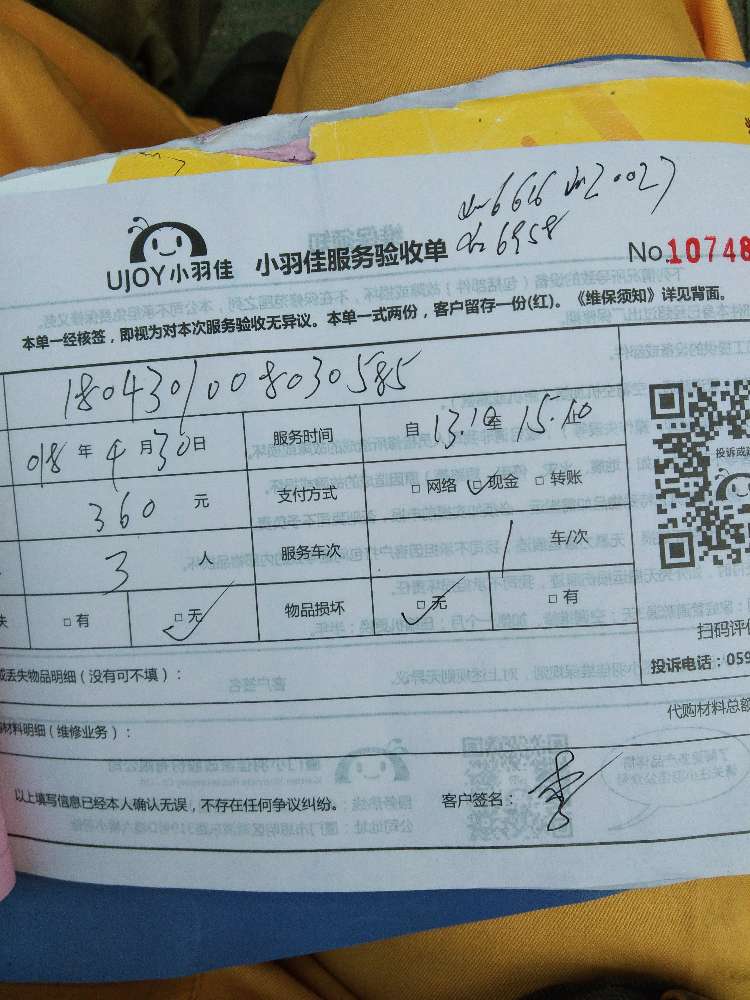 山6616 山2.027
出6958
UJOY小羽佳 小羽佳服务验收单 No.10748
本单一经核签，即视为对本次服务验收无异议。本单一式两份，客户留存一份(红)。《维保须知》详见背面。
1804301008030585
018年4月30日 服务时间 自13:10至15:40
360元 支付方式 □网络 ☑现金 □转账
3人 服务车次 1车/次
失 □有 ☑无 物品损坏 ☑无 □有
投诉或建
扫码评价
投诉电话：059
或丢失物品明细（没有可不填）：
代购材料总额
材料明细（维修业务）：
以上填写信息已经本人确认无误，不存在任何争议纠纷。 客户签名：